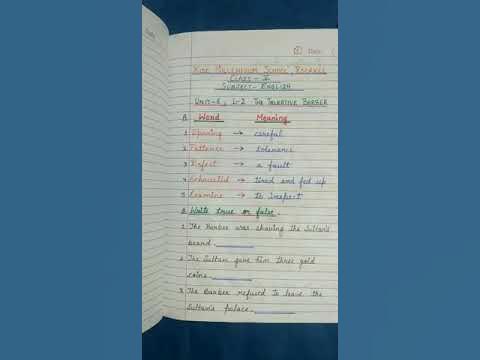 Date
Kids Millennium School
Class - V
Subject - English
Unit-4, L-2 The Talkative Barber
A Word Meaning
1 Sparing → careful
2 Patience → tolerance
3 Defect → a fault
4 Exhausted → tired and fed up
5 Examine → to inspect
B Write true or false.
1 The Barber was shaving the Sultan's
beard.
2 The Sultan gave him three gold
coins.
3 The Barber refused to leave the
Sultan's palace.